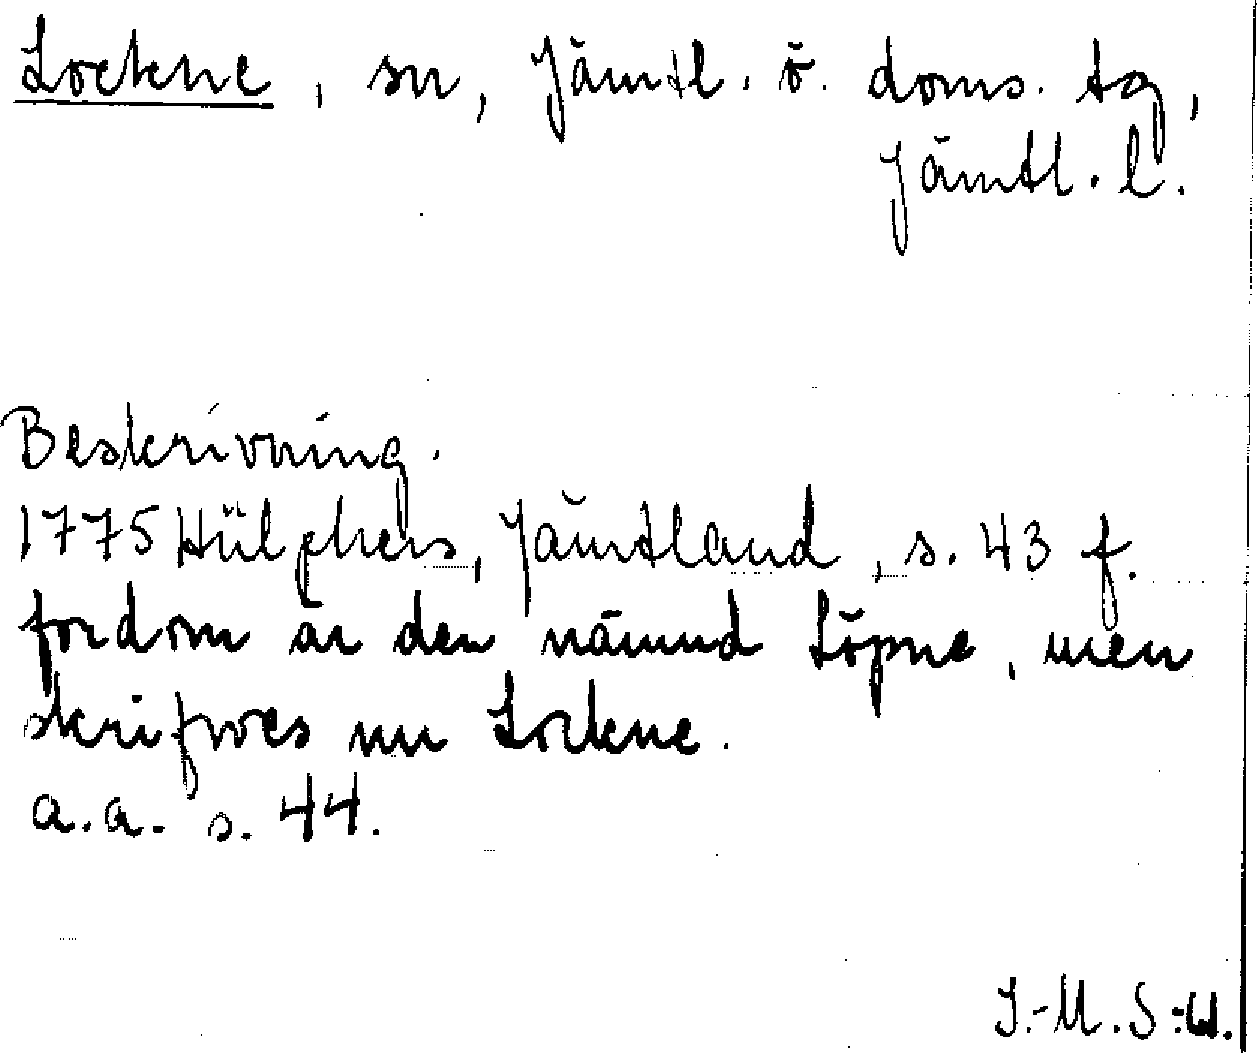 Lockne, sn, Jämtl. ö. doms. tg,
Jämtl. l.
Beskrivning.
1775 Hülphers, Jämtland, s. 43 f.
fordom är den nämnd Löpne, men
skrifwes nu Lockne.
a.a. s. 44.
I.-M. S-W.